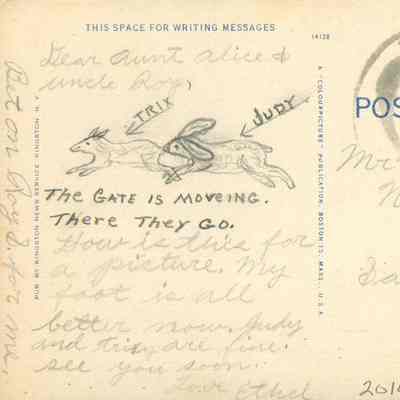 THIS SPACE FOR WRITING MESSAGES
14128
Dear Aunt Alice &
Uncle Roy,
TRIX
JUDY.
THE GATE IS MOVEING.
THERE THEY GO.
How is this for
a picture. My
foot is all
better now. Judy
and Trix are fine.
see you soon.
Love Ethel
Bet on Roy 2. for me.
PUB. BY KINGSTON NEWS SERVICE, KINGSTON, N. Y.
A "COLOURPICTURE" PUBLICATION, BOSTON 15, MASS., U.S.A.
POS
Mr
201